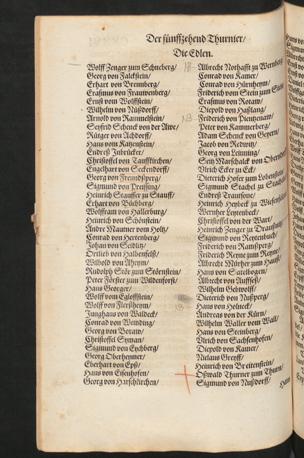 Der fünffzehend Thurnier/
Die Edlen.
Wolff Zenger zum Schneberg/
Georg von Falckstein/
Erhart von Brennberg/
Erasmus von Frauwenberg/
Ernst von Wolffstein/
Wilhelm von Nußdorff/
Arnold von Rammelstein/
Seyfrid Schenck von der Auwe/
Rüttger von Achdorff/
Hans vom Katzenstein/
Endreß Zubrücker/
Christoffel von Taufftkirchen/
Engelhart von Seckendorff/
Georg von Freundtsperg/
Sigmund von Preising/
Heinrich Stauffer zu Stauff/
Erhart von Büchberg/
Wolffram von Hallerburg/
Heinrich von Schönstein/
Andre Mautner vom Holtz/
Conrad von Hertenberg/
Johan von Seiditz/
Ortlieb von Halbenfelß/
Wilbold von Ahrein/
Rudolph Stör zum Störenstein/
Peter Förster zum Wildenforst/
Hans Georger/
Wolff vom Egloffstein/
Wolff von Flersheim/
Junghans von Waldeck/
Conrad von Wending/
Georg von Botaw/
Christoffel Syman/
Sigmund von Eychberg/
Georg Oberheymer/
Eberhart von Epß/
Hans von Eisenhofen/
Georg von Harschkirchen/
Albrecht Nothafft zu
Conrad von Kamer/
Conrad von Hürnheym/
Friderich von Stein zum
Erasmus von Rotaw/
Diepold von Haßlang/
Friderich von Pientzenaw/
Peter von Kammerberg/
Bram Schenck von Geyern/
Jacob von Redwitz/
Georg von Leinning/
Seitz Marschalck von
Ulrich Ecker zu Eck/
Dieterich Hofer zum Lobenstein/
Sigmund Stachel zu
Endreß Trautsone/
Heinrich Heybeck zu
Wernher Leytenbeck/
Christoffel von der Wart/
Heinrich Zenger zu
Sigmund von Reyttenbuch/
Friderich von Nußberg/
Friderich Reyne zum Reyne/
Albrecht Mürher zum
Hans von Satelbogen/
Albrecht von Aufseß/
Wilhelm Gewolff/
Heinrich von Nußperg/
Hans von Helneck/
Andreas von der Kürn/
Wilhelm Waller vom Wall/
Hans von Steinberg/
Ulrich von Sachsenhofen/
Diepold von Kamer/
Niclaus Greyff/
Heinrich von Breitenstein/
Oßwald Thurner zum Thurn/
Sigmund von Nußdorff/